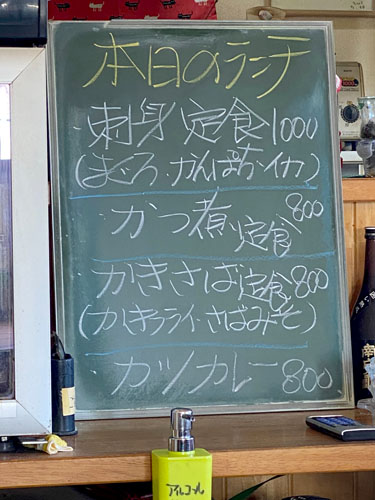 本日のランチ
・刺身定食 1000
(まぐろ・かんぱち・イカ)
・かつ煮定食 800
・かきさば定食 800
(カキフライ・さばみそ)
・カツカレー 800
アルコール